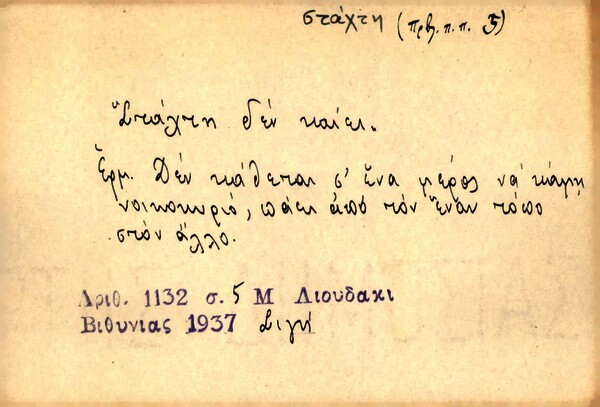 στάχτη (πρβ. π.π. 5)
"Στάχτη δέν καίει".
Ἑρμ. Δέν κάθεται σ' ἕνα μέρος νά κάμῃ
νοικοκυριό, πάει ἀπό τόν ἕναν τόπο
στόν ἄλλο.
Αριθ. 1132 σ. 5 Μ Λιουδακι
Βιθυνιας 1937 Σιγή